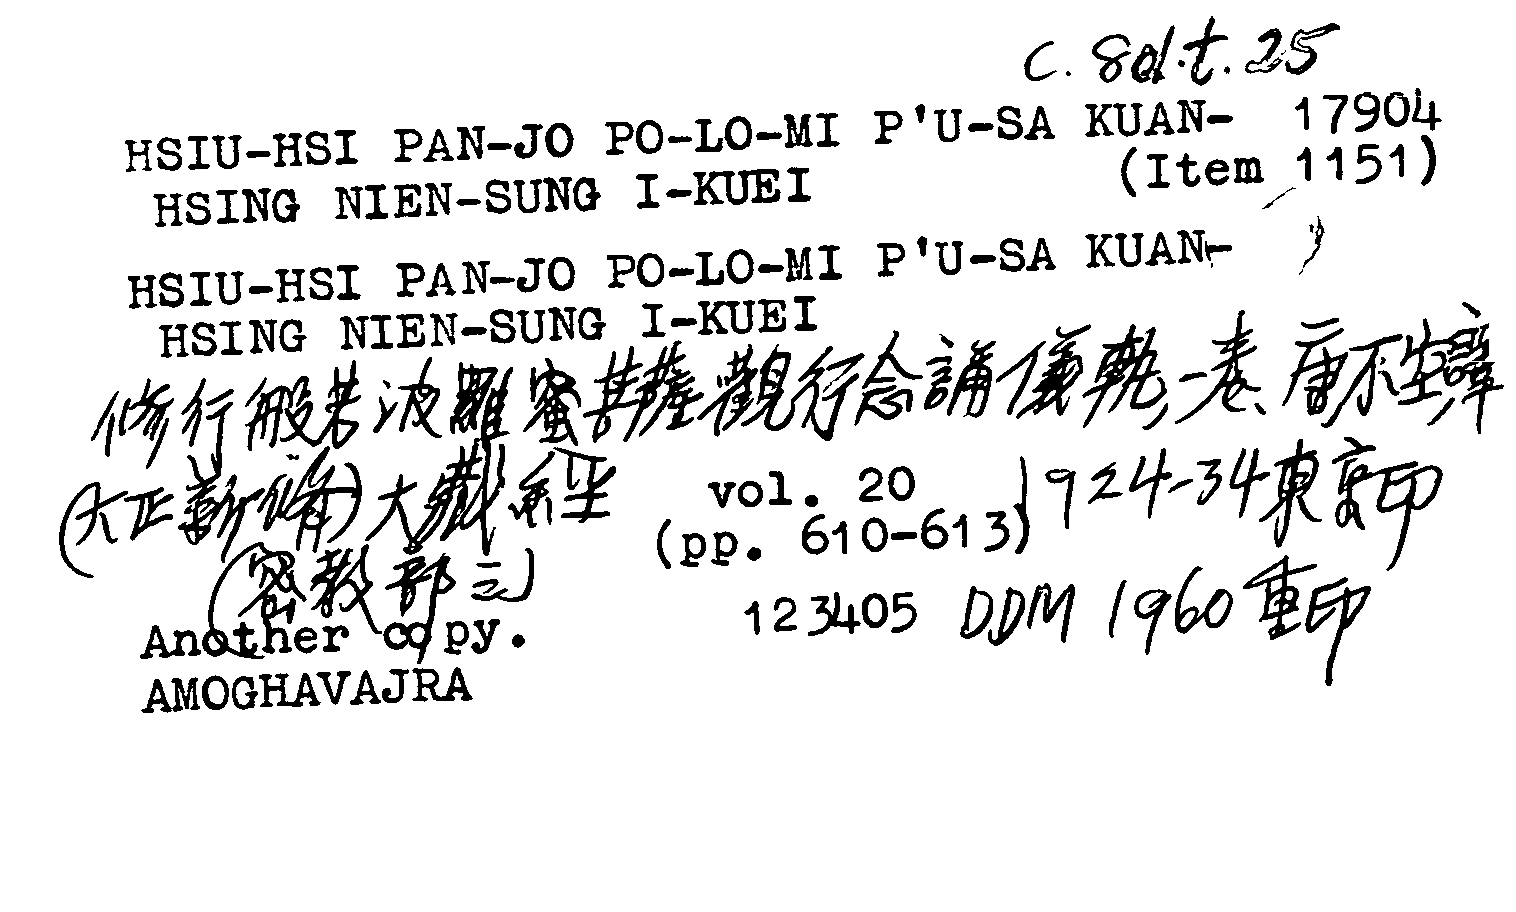 C. 801.t.25
HSIU-HSI PAN-JO PO-LO-MI P'U-SA KUAN- 17904
HSING NIEN-SUNG I-KUEI (Item 1151)
HSIU-HSI PAN-JO PO-LO-MI P'U-SA KUAN-
HSING NIEN-SUNG I-KUEI
修行般若波羅蜜菩薩觀行念誦儀軌,一卷、唐不空譯
(大正新修)大藏經 vol. 20 1924-34東京印
(密教部三) (pp. 610-613)
Another copy. 123405 DDM 1960重印
AMOGHAVAJRA